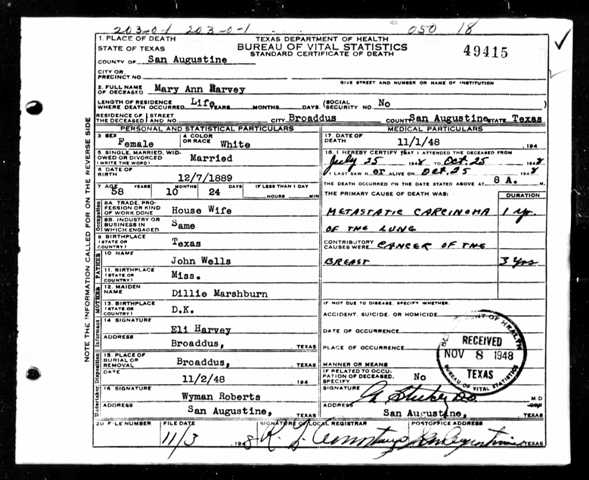 203-0-1 203-0-1 050 18
1. PLACE OF DEATH
STATE OF TEXAS
TEXAS DEPARTMENT OF HEALTH
BUREAU OF VITAL STATISTICS
STANDARD CERTIFICATE OF DEATH
49415
COUNTY OF San Augustine
CITY OR PRECINCT NO.
GIVE STREET AND NUMBER OR NAME OF INSTITUTION
2. FULL NAME OF DECEASED Mary Ann Harvey
LENGTH OF RESIDENCE WHERE DEATH OCCURRED Life YEARS MONTHS DAYS (SOCIAL SECURITY NO. No
RESIDENCE OF THE DECEASED STREET AND NO. CITY Broaddus COUNTY San Augustine STATE Texas
PERSONAL AND STATISTICAL PARTICULARS
3. SEX Female
4. COLOR OR RACE White
5. SINGLE, MARRIED, WIDOWED OR DIVORCED (WRITE THE WORD) Married
6. DATE OF BIRTH 12/7/1889
7. AGE 58 YEARS 10 MONTHS 24 DAYS IF LESS THAN 1 DAY HOURS MIN
8A. TRADE, PROFESSION OR KIND OF WORK DONE House Wife
8B. INDUSTRY OR BUSINESS IN WHICH ENGAGED Same
9. BIRTHPLACE (STATE OR COUNTRY) Texas
10. NAME John Wells
11. BIRTHPLACE (STATE OR COUNTRY) Miss.
12. MAIDEN NAME Dillie Marshburn
13. BIRTHPLACE (STATE OR COUNTRY) D.K.
14. SIGNATURE Eli Harvey
ADDRESS Broaddus, TEXAS
15. PLACE OF BURIAL OR REMOVAL Broaddus, TEXAS
DATE 11/2/48
16. SIGNATURE Wyman Roberts
ADDRESS San Augustine, TEXAS
MEDICAL PARTICULARS
17. DATE OF DEATH 11/1/48 194
18. I HEREBY CERTIFY THAT I ATTENDED THE DECEASED FROM
July 25 1948 TO Oct. 25 1948
I LAST SAW ALIVE ON Oct. 25 1948
THE DEATH OCCURRED ON THE DATE STATED ABOVE AT 8 A. M.
THE PRIMARY CAUSE OF DEATH WAS: DURATION
METASTATIC CARCINOMA 1 yr.
OF THE LUNG
CONTRIBUTORY CAUSES WERE CANCER OF THE
BREAST 3 yrs
IF NOT DUE TO DISEASE, SPECIFY WHETHER.
ACCIDENT, SUICIDE, OR HOMICIDE
DATE OF OCCURRENCE
PLACE OF OCCURRENCE
MANNER OR MEANS
IF RELATED TO OCCUPATION OF DECEASED, SPECIFY No
M D
ADDRESS San Augustine, TEXAS
RECEIVED
NOV 8 1948
TEXAS
BUREAU OF VITAL STATISTICS
20. FILE NUMBER
FILE DATE 11/3 1948
SIGNATURE OF LOCAL REGISTRAR
POSTOFFICE ADDRESS San Augustine TEXAS
NOTE THE INFORMATION CALLED FOR ON THE REVERSE SIDE